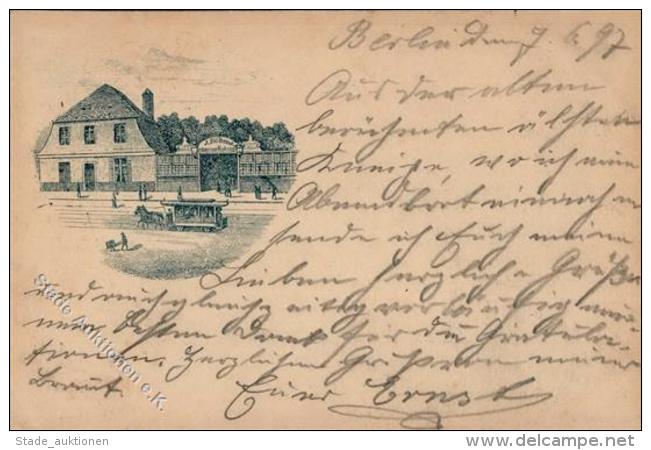 Berlin den 7 6. 97
Aus der alten
berühmten ältsten
Kneipe, wo ich mein
Abendbrot einnahm
sende ich Euch meine
Lieben herzliche Grüße
und zugleich
besten Dank für die Gratula-
tionen. Herzlichen Gruß von meiner
Braut. Euer Ernst
Stade Auktionen e.K.
Stade_auktionen
http://www.delcampe.net